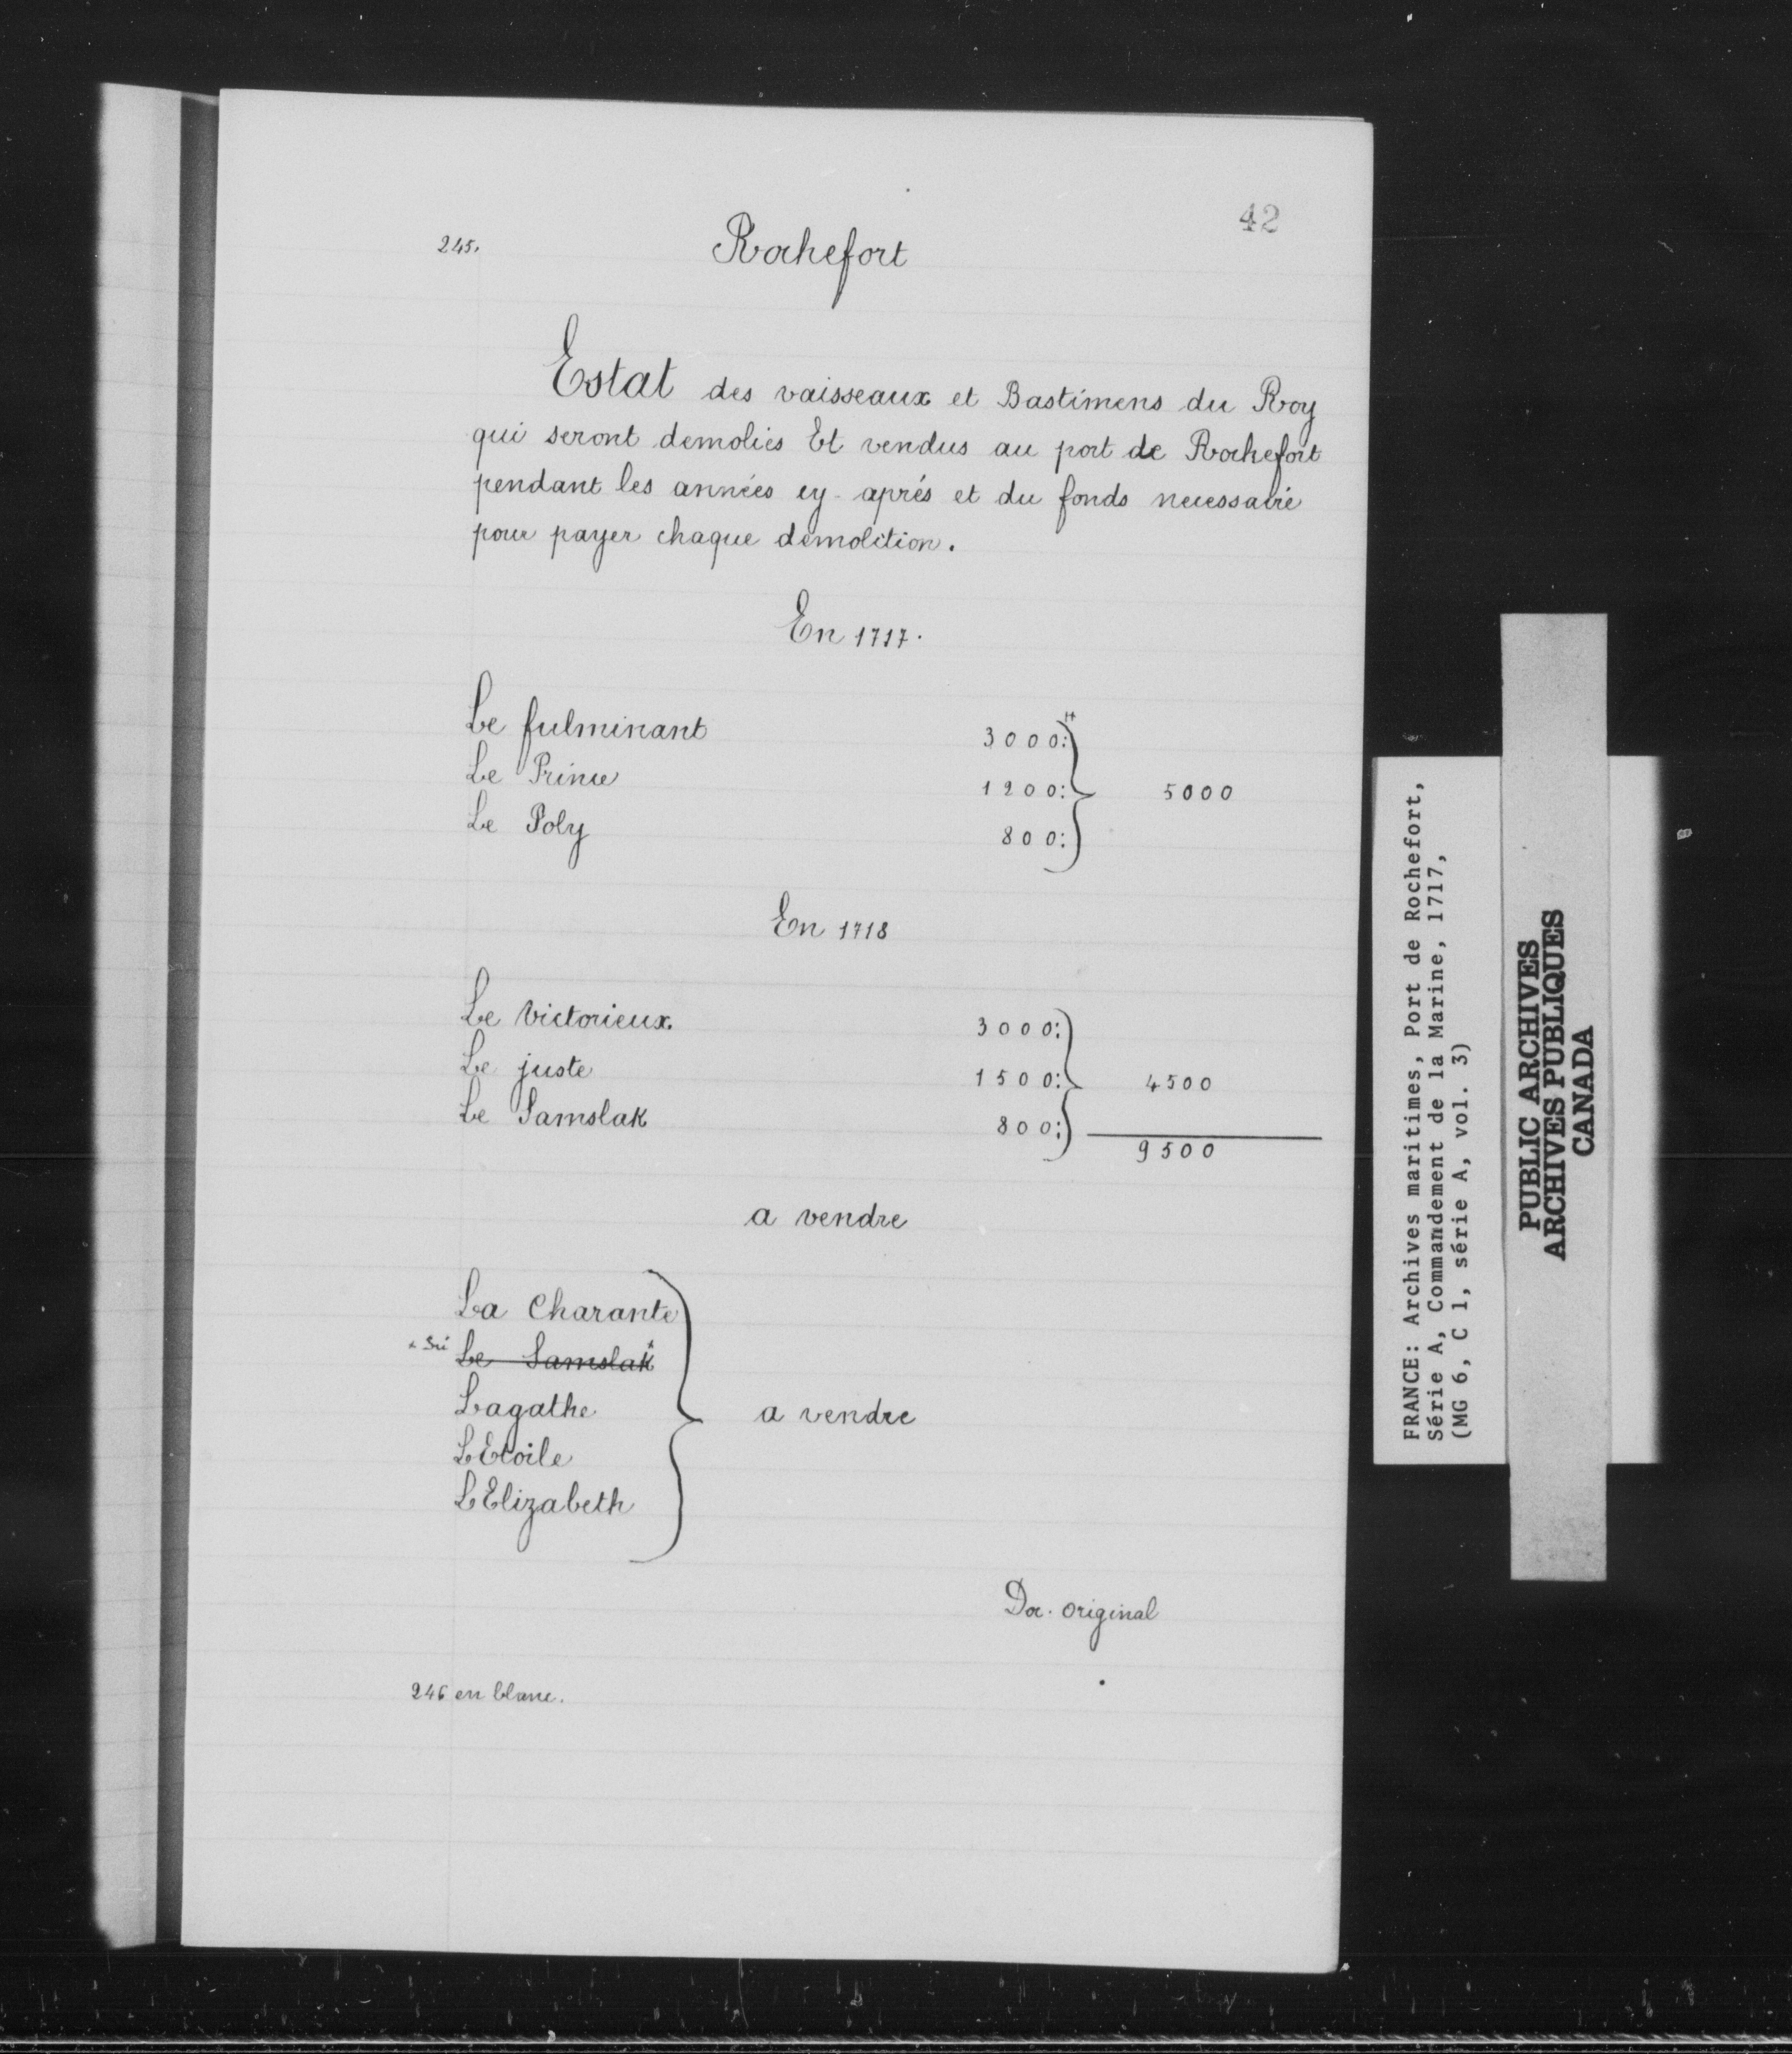 42
245. Rochefort
Estat des vaisseaux et Bastimens du Roy
qui seront demolies Et vendus au port de Rochefort
pendant les années cy-aprés et du fonds necessaire
pour payer chaque demolition.
En 1717.
Le fulminant 3000:
Le Prince 1200: 5000
Le Poly 800:
En 1718
Le Victorieux 3000:
Le juste 1500: 4500
Le Samslak 800:
9500
a vendre
La Charante
Le Samslak
Lagathe a vendre
LEtoile
LElizabeth
Doc. original
246 en blanc.
FRANCE: Archives maritimes, Port de Rochefort,
Série A, Commandement de la Marine, 1717,
(MG 6, C 1, série A, vol. 3)
PUBLIC ARCHIVES
ARCHIVES PUBLIQUES
CANADA